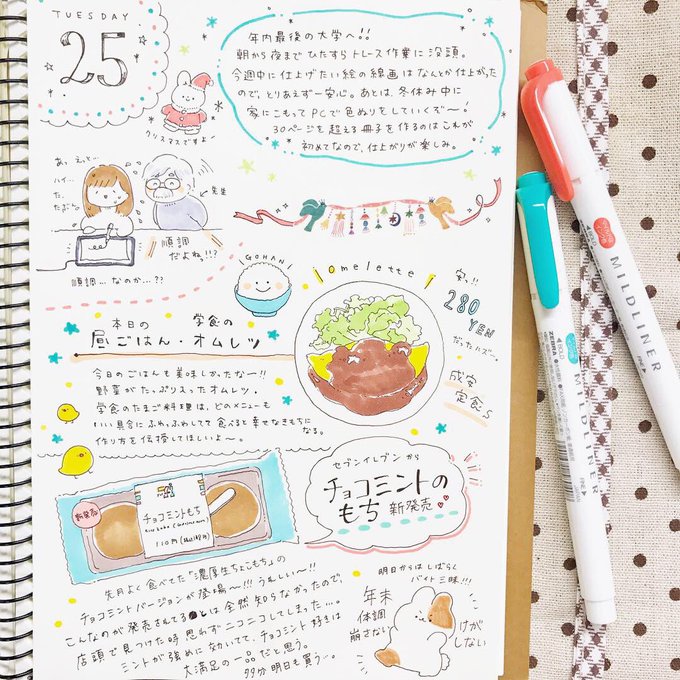 TUESDAY
25
クリスマスですよー
年内最後の大学へ!!
朝から夜まで ひたすら トレース作業に 没頭。
今週中に仕上げたい絵の線画は なんとか仕上がった
ので、とりあえず一安心。あとは、冬休み中に
家にこもってPCで色ぬりをしていくぞ〜!
30ページを超える冊子を作るのは これが
初めてなので、仕上がりが楽しみ。
あっ えっと…
ハイ…
た、
たぶん
先生
順調
だよねっ!!?
順調… なのか…??
GOHAN
omelette!
安っ!!
280
YEN
だったハズ〜。
成安
定食s
本日の 学食の
昼ごはん・オムレツ
今日のごはんも美味しかったなー!!
野菜がたっぷり入ったオムレツ。
学食のたまご料理は、どのメニューも
いい具合に ふわふわしてて 食べると 幸せなきもちに
なる。
作り方を伝授してほしいよ〜。
セブンイレブンから
チョコミントの
もち 新発売
新発売
チョコミントもち
先月よく食べてた「濃厚生ちょこもち」の
チョコミントバージョンが登場〜!!! うれしい〜!!
こんなのが発売されてるとは全然知らなかったので、
店頭で見つけた時 思わず ニコニコしてしまった…。
ミントが強めに効いてて、チョコミント好きは
大満足の一品だと思う。
多分明日も買う…。
明日からは しばらく
バイト三昧!!!
年末
体調
崩さない
けが
しない
MILDLINER
MILDLINER
ZEBRA